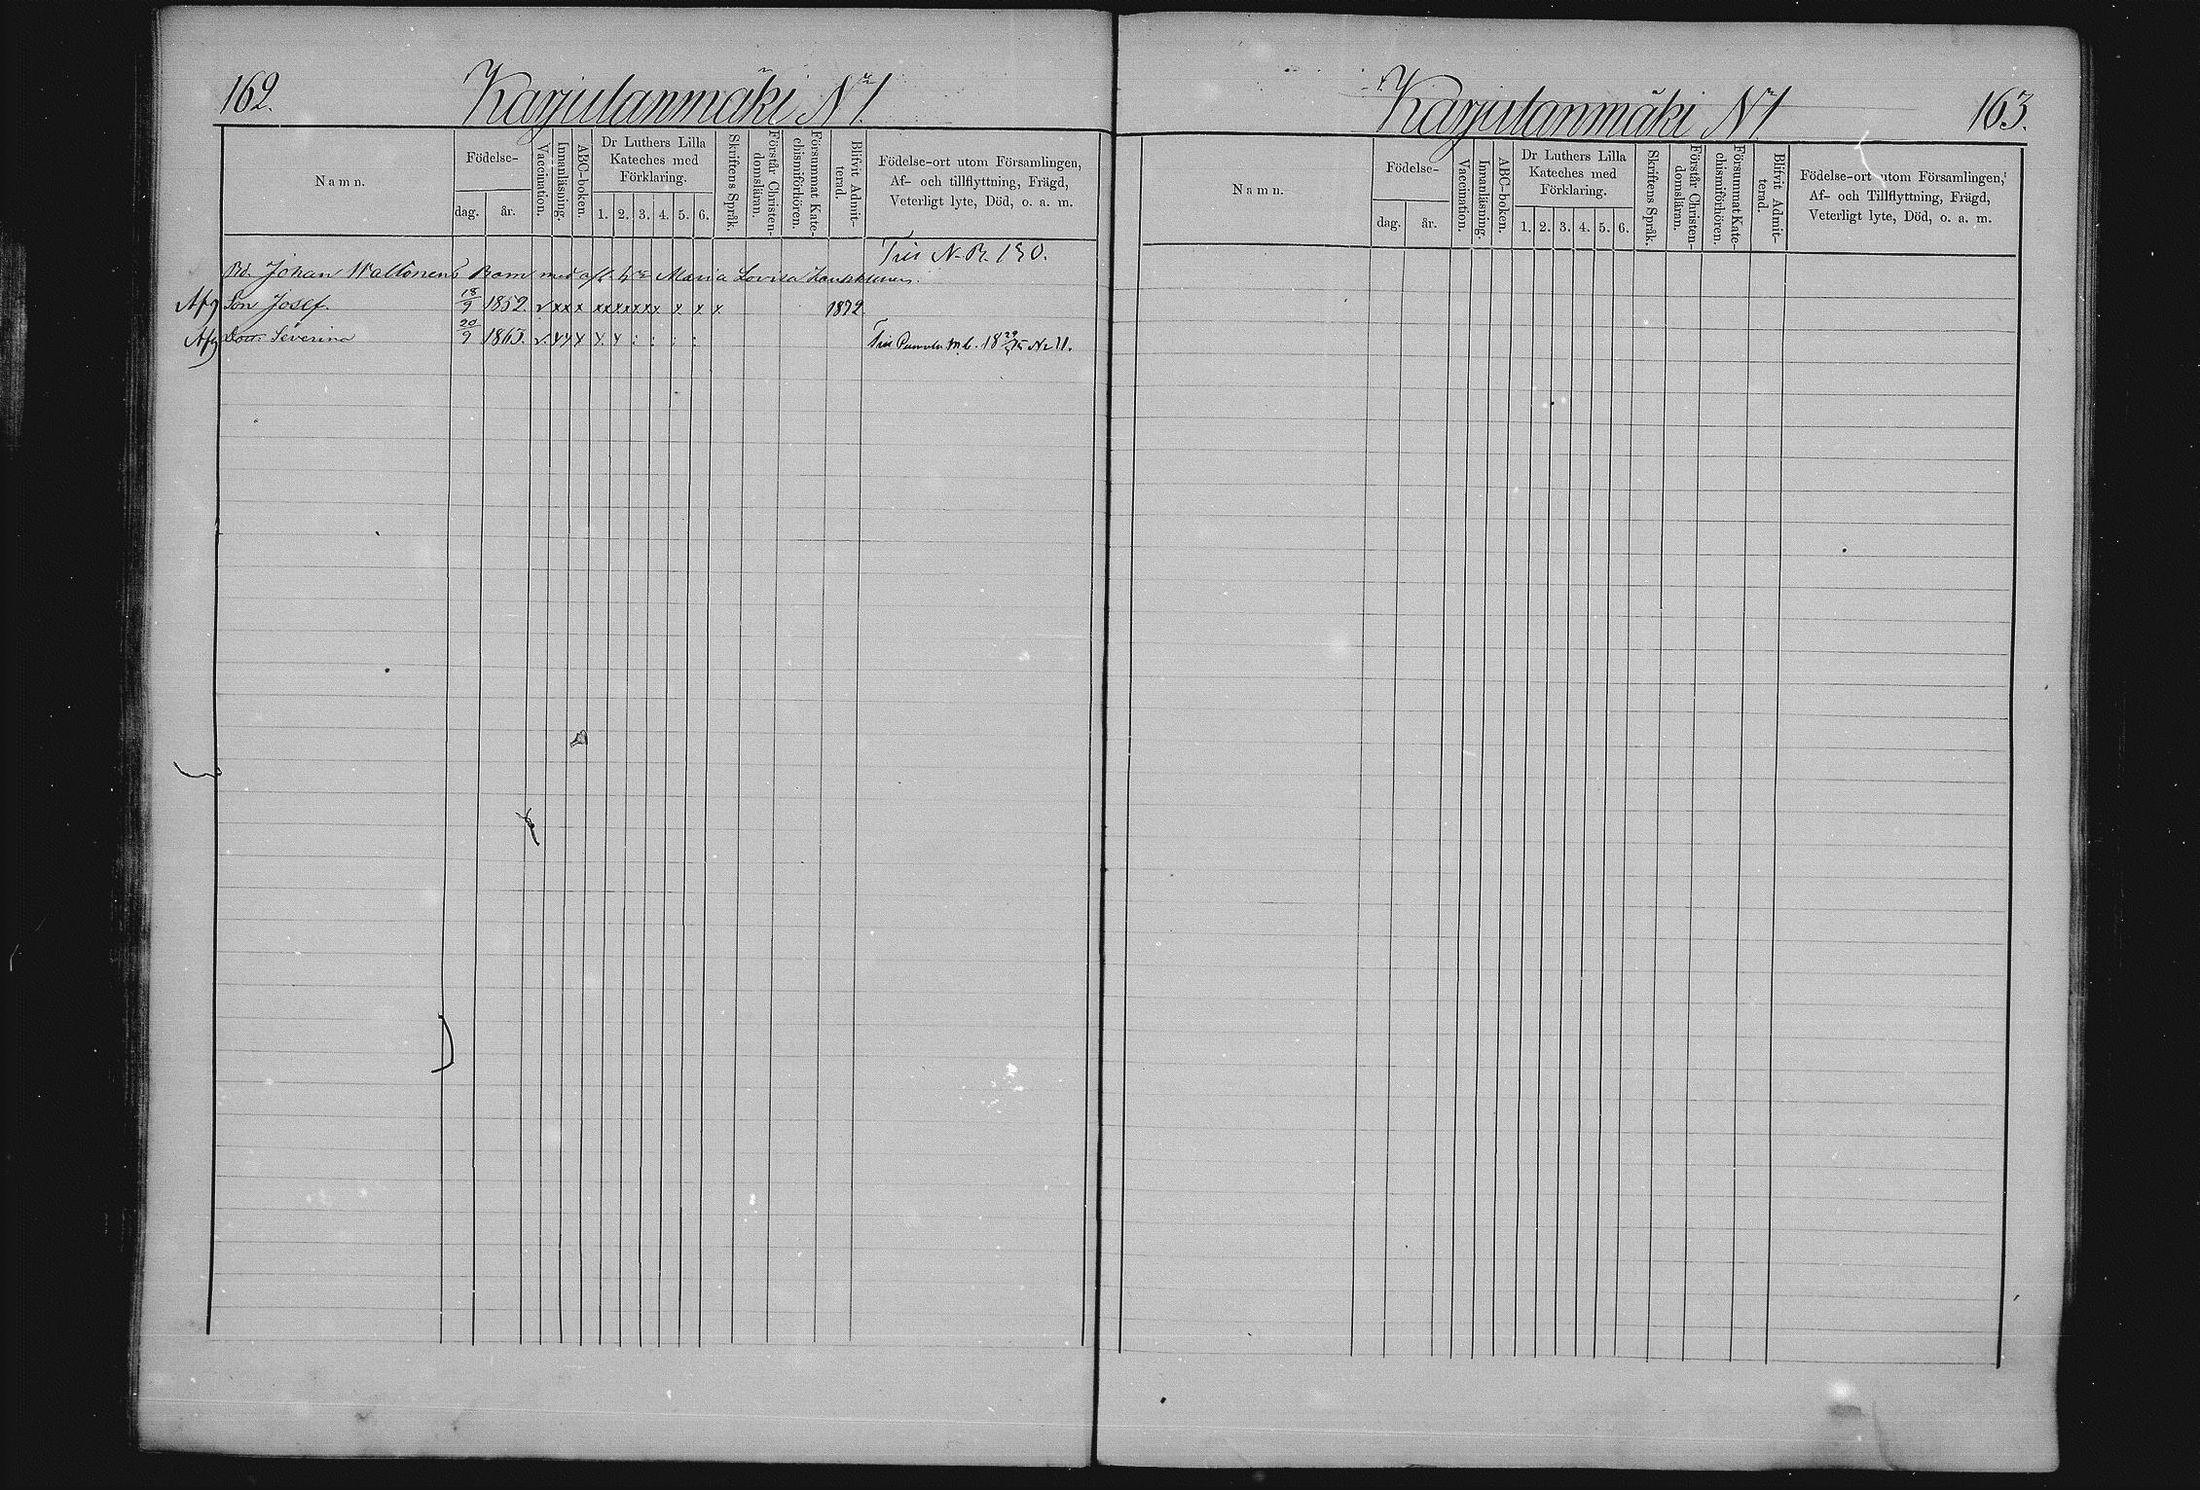 162.
Karjulanmäki Nr 1
Namn.
Födelse-
dag.
år.
Vaccination.
Innanläsning.
ABC-boken.
Dr Luthers Lilla
Kateches med
Förklaring.
1. 2. 3. 4. 5. 6.
Skriftens Språk.
Förstår Christen-
domsläran.
Försummat Kate-
chismiförhören.
Blifvit Admit-
terad.
Födelse-ort utom Församlingen,
Af- och tillflyttning, Frägd,
Veterligt lyte, Död, o. a. m.
Johan Waltonens Barn med Maria Lovisa
Afg Son Josef. 18/9 1852. v x x x x x x x x x x x x x 1872
Afg Dotr Severina 20/9 1863. v. x x x x. x : : : : Nr 11.
Karjulanmäki Nr 1
163.
Namn.
Födelse-
dag.
år.
Vaccination.
Innanläsning.
ABC-boken.
Dr Luthers Lilla
Kateches med
Förklaring.
1. 2. 3. 4. 5. 6.
Skriftens Språk.
Förstår Christen-
domsläran.
Försummat Kate-
chismiförhören.
Blifvit Admit-
terad.
Födelse-ort utom Församlingen,
Af- och Tillflyttning, Frägd,
Veterligt lyte, Död, o. a. m.